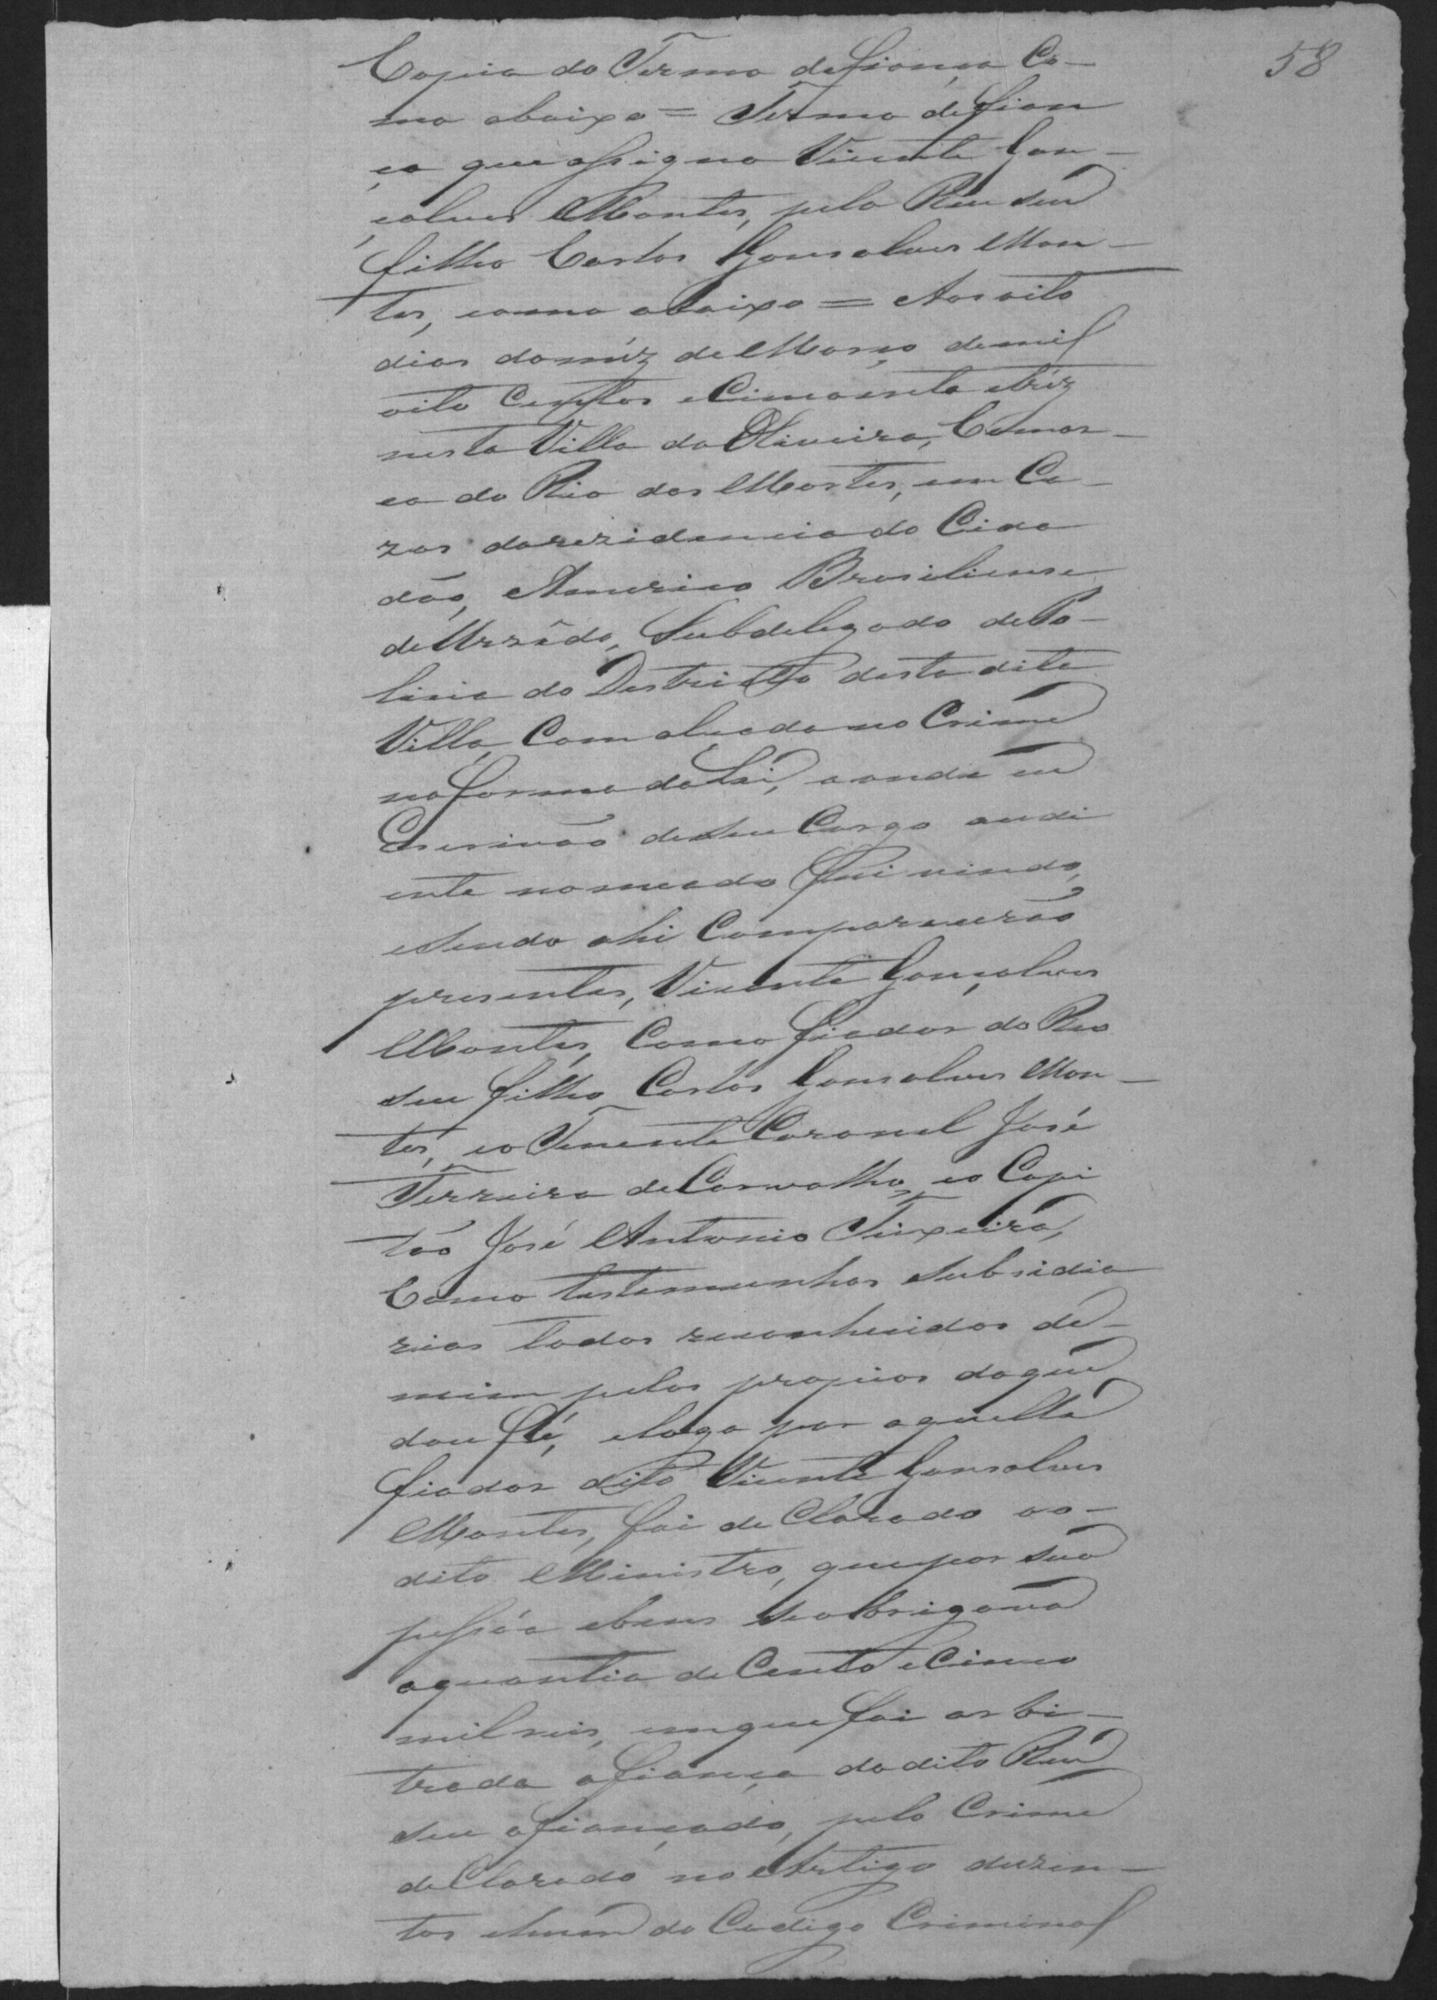 58
Copia do Termo de fiança Co-
mo abaixo = Termo de fian
ça que assigna Vicente Gon-
çalves Montes, pelo Reu seu
filho Carlos Gonsalves Mon-
tes, como abaixo = Aos oito
dias do mêz de Março de mil
oito Centos e Cincoenta e trêz
nesta Villa da Oliveira, Comar-
ca do Rio das Mortes, em Ca-
zas da rezidencia do Cida
dão, Americo Brasiliense
de Urzêdo, Subdelegado de Po-
licia do Destricto desta dita
Villa, Com alçada no Crime
na forma da Lei, aonde eu
Escrivão de seu Cargo audi
ente nomeado fui vindo,
e sendo ahi Comparecerão
presentes, Vicente Gonçalves
Montes, Como fiador do Reo
seu filho Carlos Gonsalves Mon-
tes, e o Tenente Coronel José
Ferreira de Carvalho, e o Capi
tão José Antonio Teixeira,
Como testemunhas subsidia
rias todos reconhecidos de-
mim pelos propios do que
dou fé, e logo por aquelle
fiador dito Vicente Gonsalves
Montes, foi de Clarado ao-
dito Ministro, que por sua
pessôa e bens se obrigava
a quantia de Cento e Cinco
mil reis, em que foi arbi-
trada a fiança do dito Reu
seu afiançado, pelo Crime
de Clarado no Artigo duzen-
tos e hum do Codigo Criminal